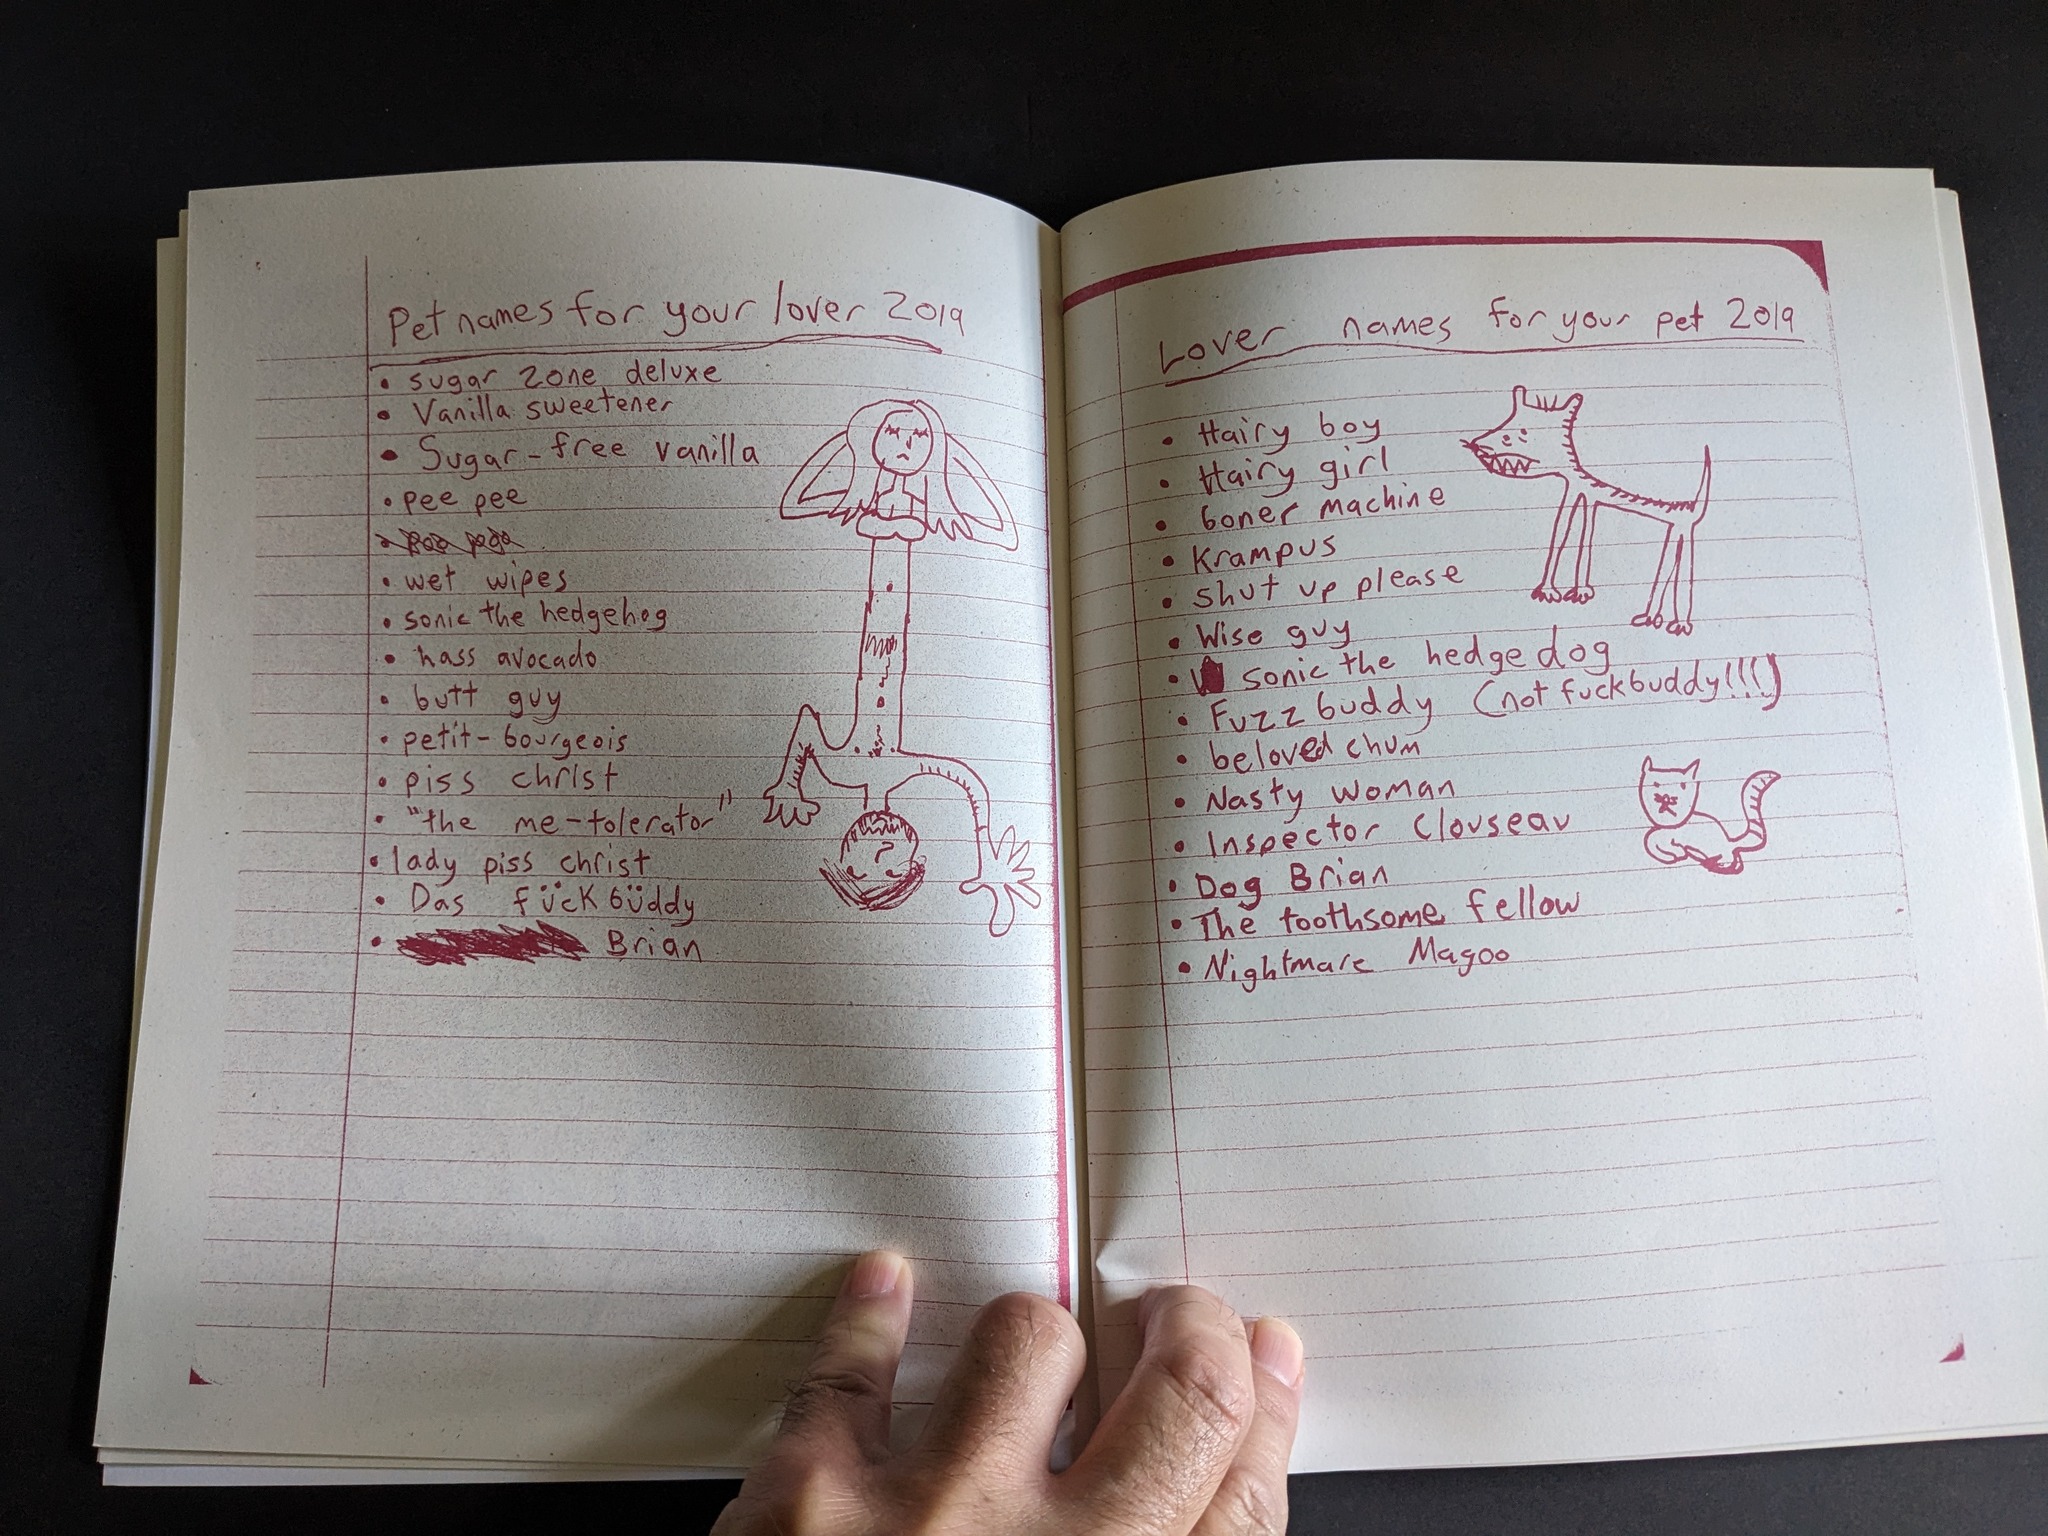 Pet names for your lover 2019
• sugar zone deluxe
• Vanilla sweetener
• Sugar-free vanilla
• pee pee
• wet wipes
• sonic the hedgehog
• hass avocado
• butt guy
• petit-bourgeois
• piss christ
• "the me-tolerator"
• lady piss christ
• Das fückbüddy
• Brian
Lover names for your pet 2019
• Hairy boy
• Hairy girl
• boner machine
• Krampus
• shut up please
• Wise guy
• sonic the hedgedog
• Fuzzbuddy (not fuckbuddy!!!)
• beloved chum
• Nasty woman
• Inspector Clouseau
• Dog Brian
• The toothsome fellow
• Nightmare Magoo